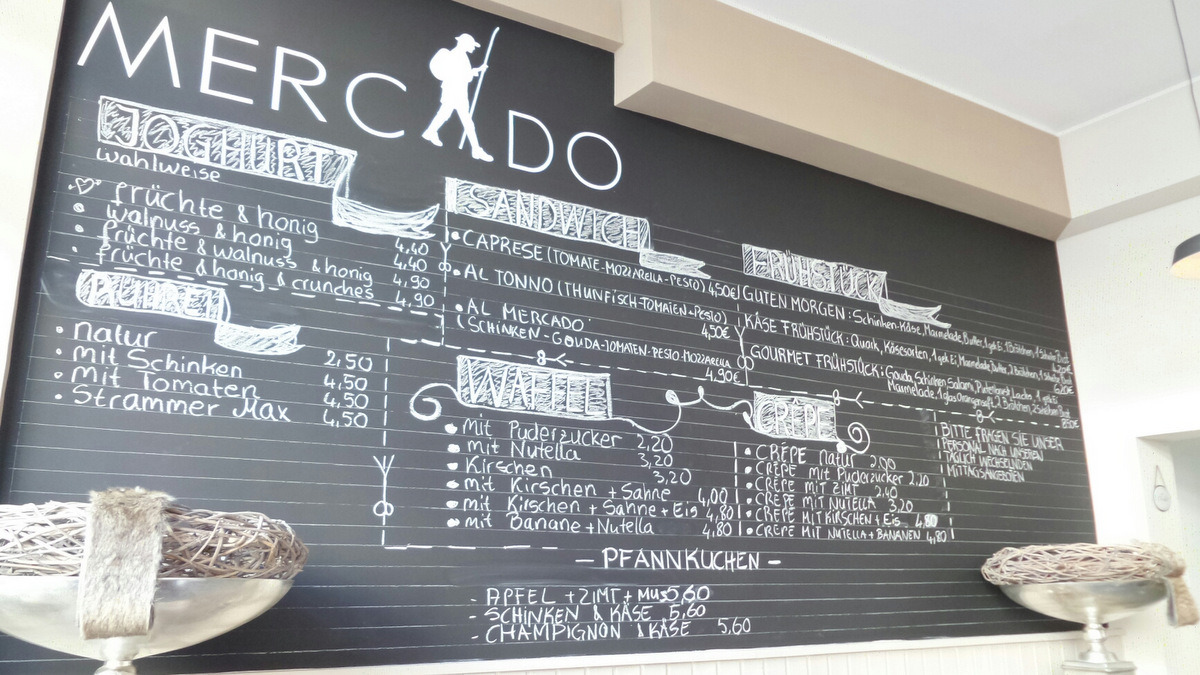 MERCADO
JOGHURT
wahlweise
früchte & honig 4,40
walnuss & honig 4,40
früchte & walnuss & honig 4,90
früchte & honig & crunches 4,90
RÜHREI
natur 2,50
mit Schinken 4,50
mit Tomaten 4,50
Strammer Max 4,50
SANDWICH
CAPRESE (TOMATE-MOZZARELLA-PESTO) 4,50€
AL TONNO (THUNFISCH-TOMATEN+PESTO) 4,50€
AL MERCADO
(SCHINKEN-GOUDA-TOMATEN-PESTO-MOZZARELLA
4,90€
FRÜHSTÜCK
GUTEN MORGEN: Schinken-Käse, Marmelade, Butter, 1 gek. Ei, 1 Brötchen, 1 Scheibe Brot
4,20€
KÄSE FRÜHSTÜCK: Quark, Käsesorten, 1 gek Ei, Marmelade, Butter, 2 Brötchen, 1 Scheibe Brot
GOURMET FRÜHSTÜCK: Gouda, Schinken, Salami, Lachs, 1 gek Ei
Marmelade, 1 glas Orangensaft, 2 Brötchen, Brot
8,50€
WAFFEL
mit Puderzucker 2,20
mit Nutella 3,20
Kirschen 3,20
mit Kirschen + Sahne 4,00
mit Kirschen + Sahne + Eis 4,80
mit Banane + Nutella 4,80
CRÊPE
CRÊPE natur 2,00
CRÊPE mit Puderzucker 2,20
CRÊPE MIT ZIMT 2,40
CRÊPE MIT NUTELLA 3,20
CRÊPE MIT KIRSCHEN + Eis 4,80
CRÊPE MIT NUTELLA + BANANEN 4,80
BITTE FRAGEN SIE UNSER
PERSONAL NACH UNSEREN
TÄGLICH WECHSELNDEN
MITTAGSANGEBOTEN
- PFANNKUCHEN -
- APFEL + ZIMT + MUS 5,60
- SCHINKEN & KÄSE 5,60
- CHAMPIGNON & KÄSE 5,60